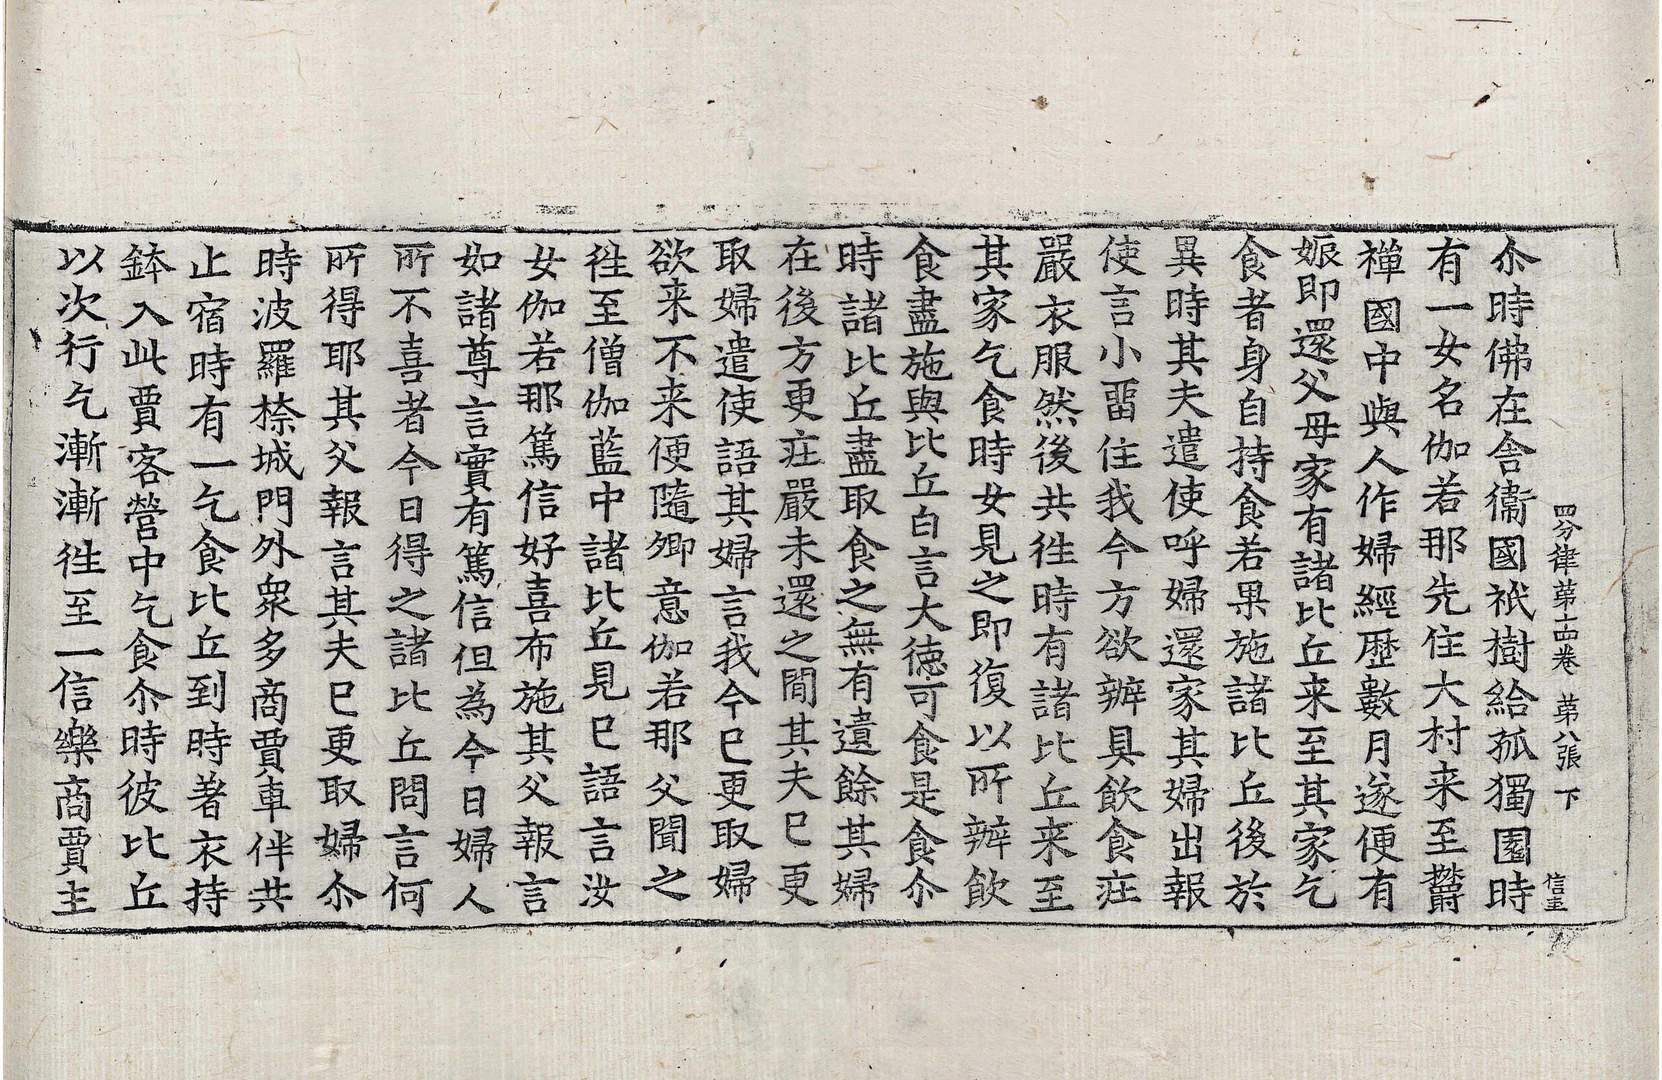 四分律苐十四卷 苐八張 下 信主
尒時佛在舍衞國祇樹給孤獨園時
有一女名伽若那先住大村来至欝
禪國中與人作婦經歷數月遂便有
娠即還父母家有諸比丘来至其家乞
食者身自持食若果施諸比丘後於
異時其夫遣使呼婦還家其婦出報
使言小畱住我今方欲辨具飲食疘
嚴衣服然後共徃時有諸比丘来至
其家乞食時女見之即復以所辨飲
食盡施與比丘白言大德可食是食尒
時諸比丘盡取食之無有遺餘其婦
在後方更疘嚴未還之間其夫已更
取婦遣使語其婦言我今已更取婦
欲来不来便隨卿意伽若那父聞之
徃至僧伽藍中諸比丘見已語言汝
女伽若那篤信好喜布施其父報言
如諸尊言實有篤信但為今日婦人
所不喜者今日得之諸比丘問言何
所得耶其父報言其夫已更取婦尒
時波羅㮈城門外衆多商賈車伴共
止宿時有一乞食比丘到時著衣持
鉢入此賈客營中乞食尒時彼比丘
以次行乞漸漸徃至一信樂商賈主